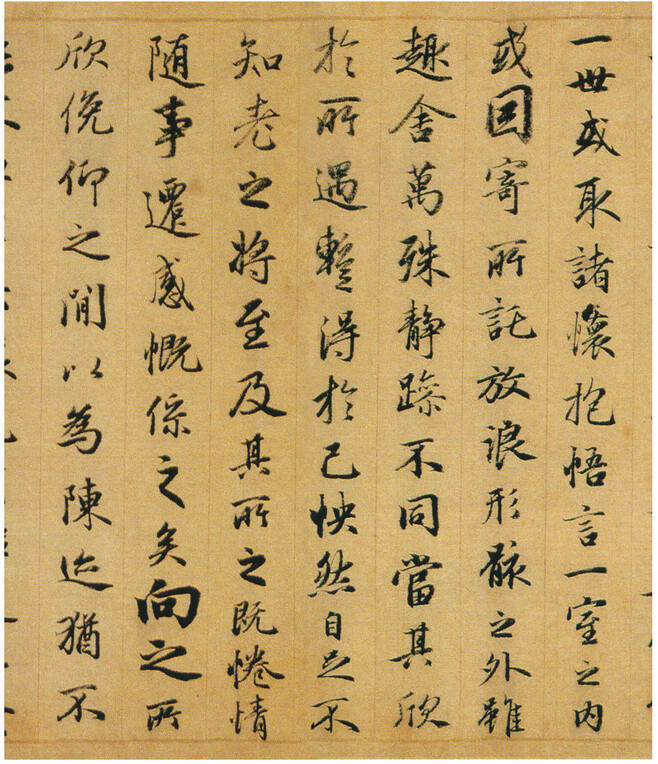 一世或取諸懷抱悟言一室之內
或因寄所託放浪形骸之外雖
趣舍萬殊靜躁不同當其欣
於所遇蹔得於己怏然自足不
知老之將至及其所之既惓情
随事遷感慨係之矣向之所
欣俛仰之閒以為陳迹猶不